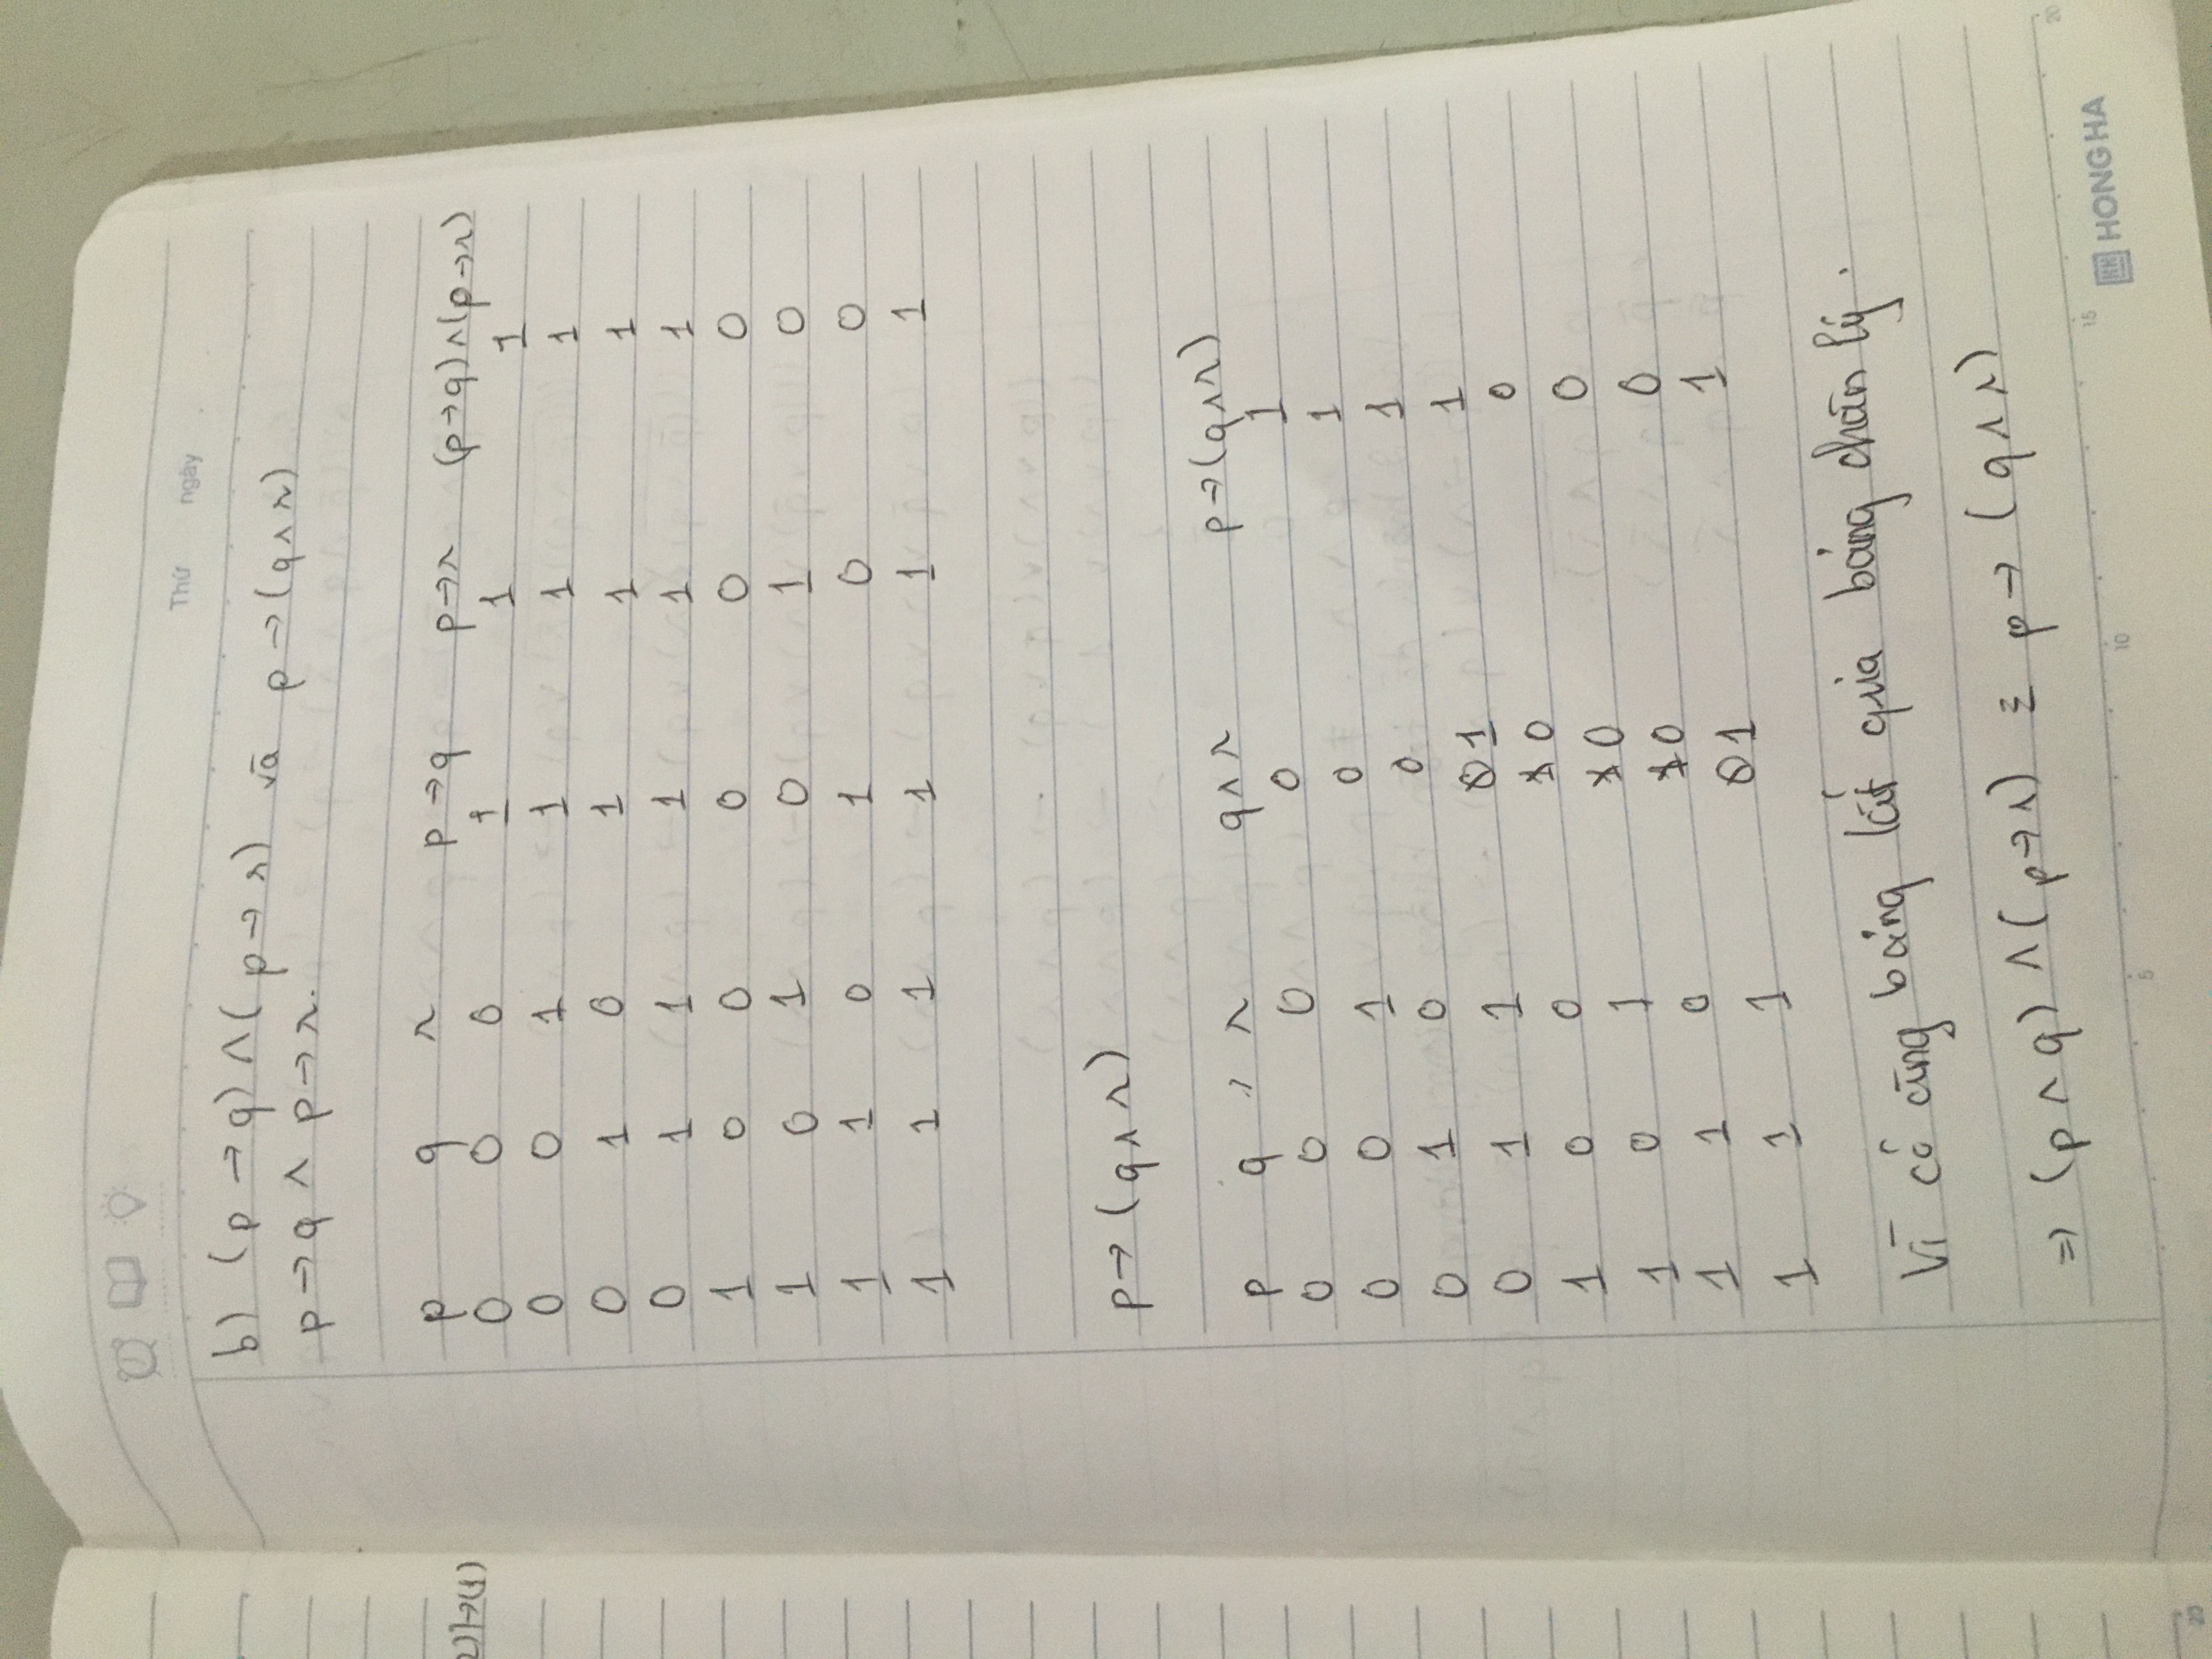 Thứ ngày
b) (p → q) ∧ (p → r) và p → (q ∧ r)
p → q ∧ p → r.
2)]→(1)
p q r p → q p → r (p → q) ∧ (p → r)
0 0 0 1 1 1
0 0 1 1 1 1
0 1 0 1 1 1
0 1 1 1 1 1
1 0 0 0 0 0
1 0 1 0 1 0
1 1 0 1 0 0
1 1 1 1 1 1
p → (q ∧ r)
p q , r q ∧ r p → (q ∧ r)
0 0 0 0 1
0 0 1 0 1
0 1 0 0 1
0 1 1 1 1
1 0 0 0 0
1 0 1 0 0
1 1 0 0 0
1 1 1 1 1
Vì có cùng bảng kết quả bảng chân lý.
⇒ (p ∧ q) ∧ (p → r) ≡ p → (q ∧ r)
5 10 15 20
HONG HA
20